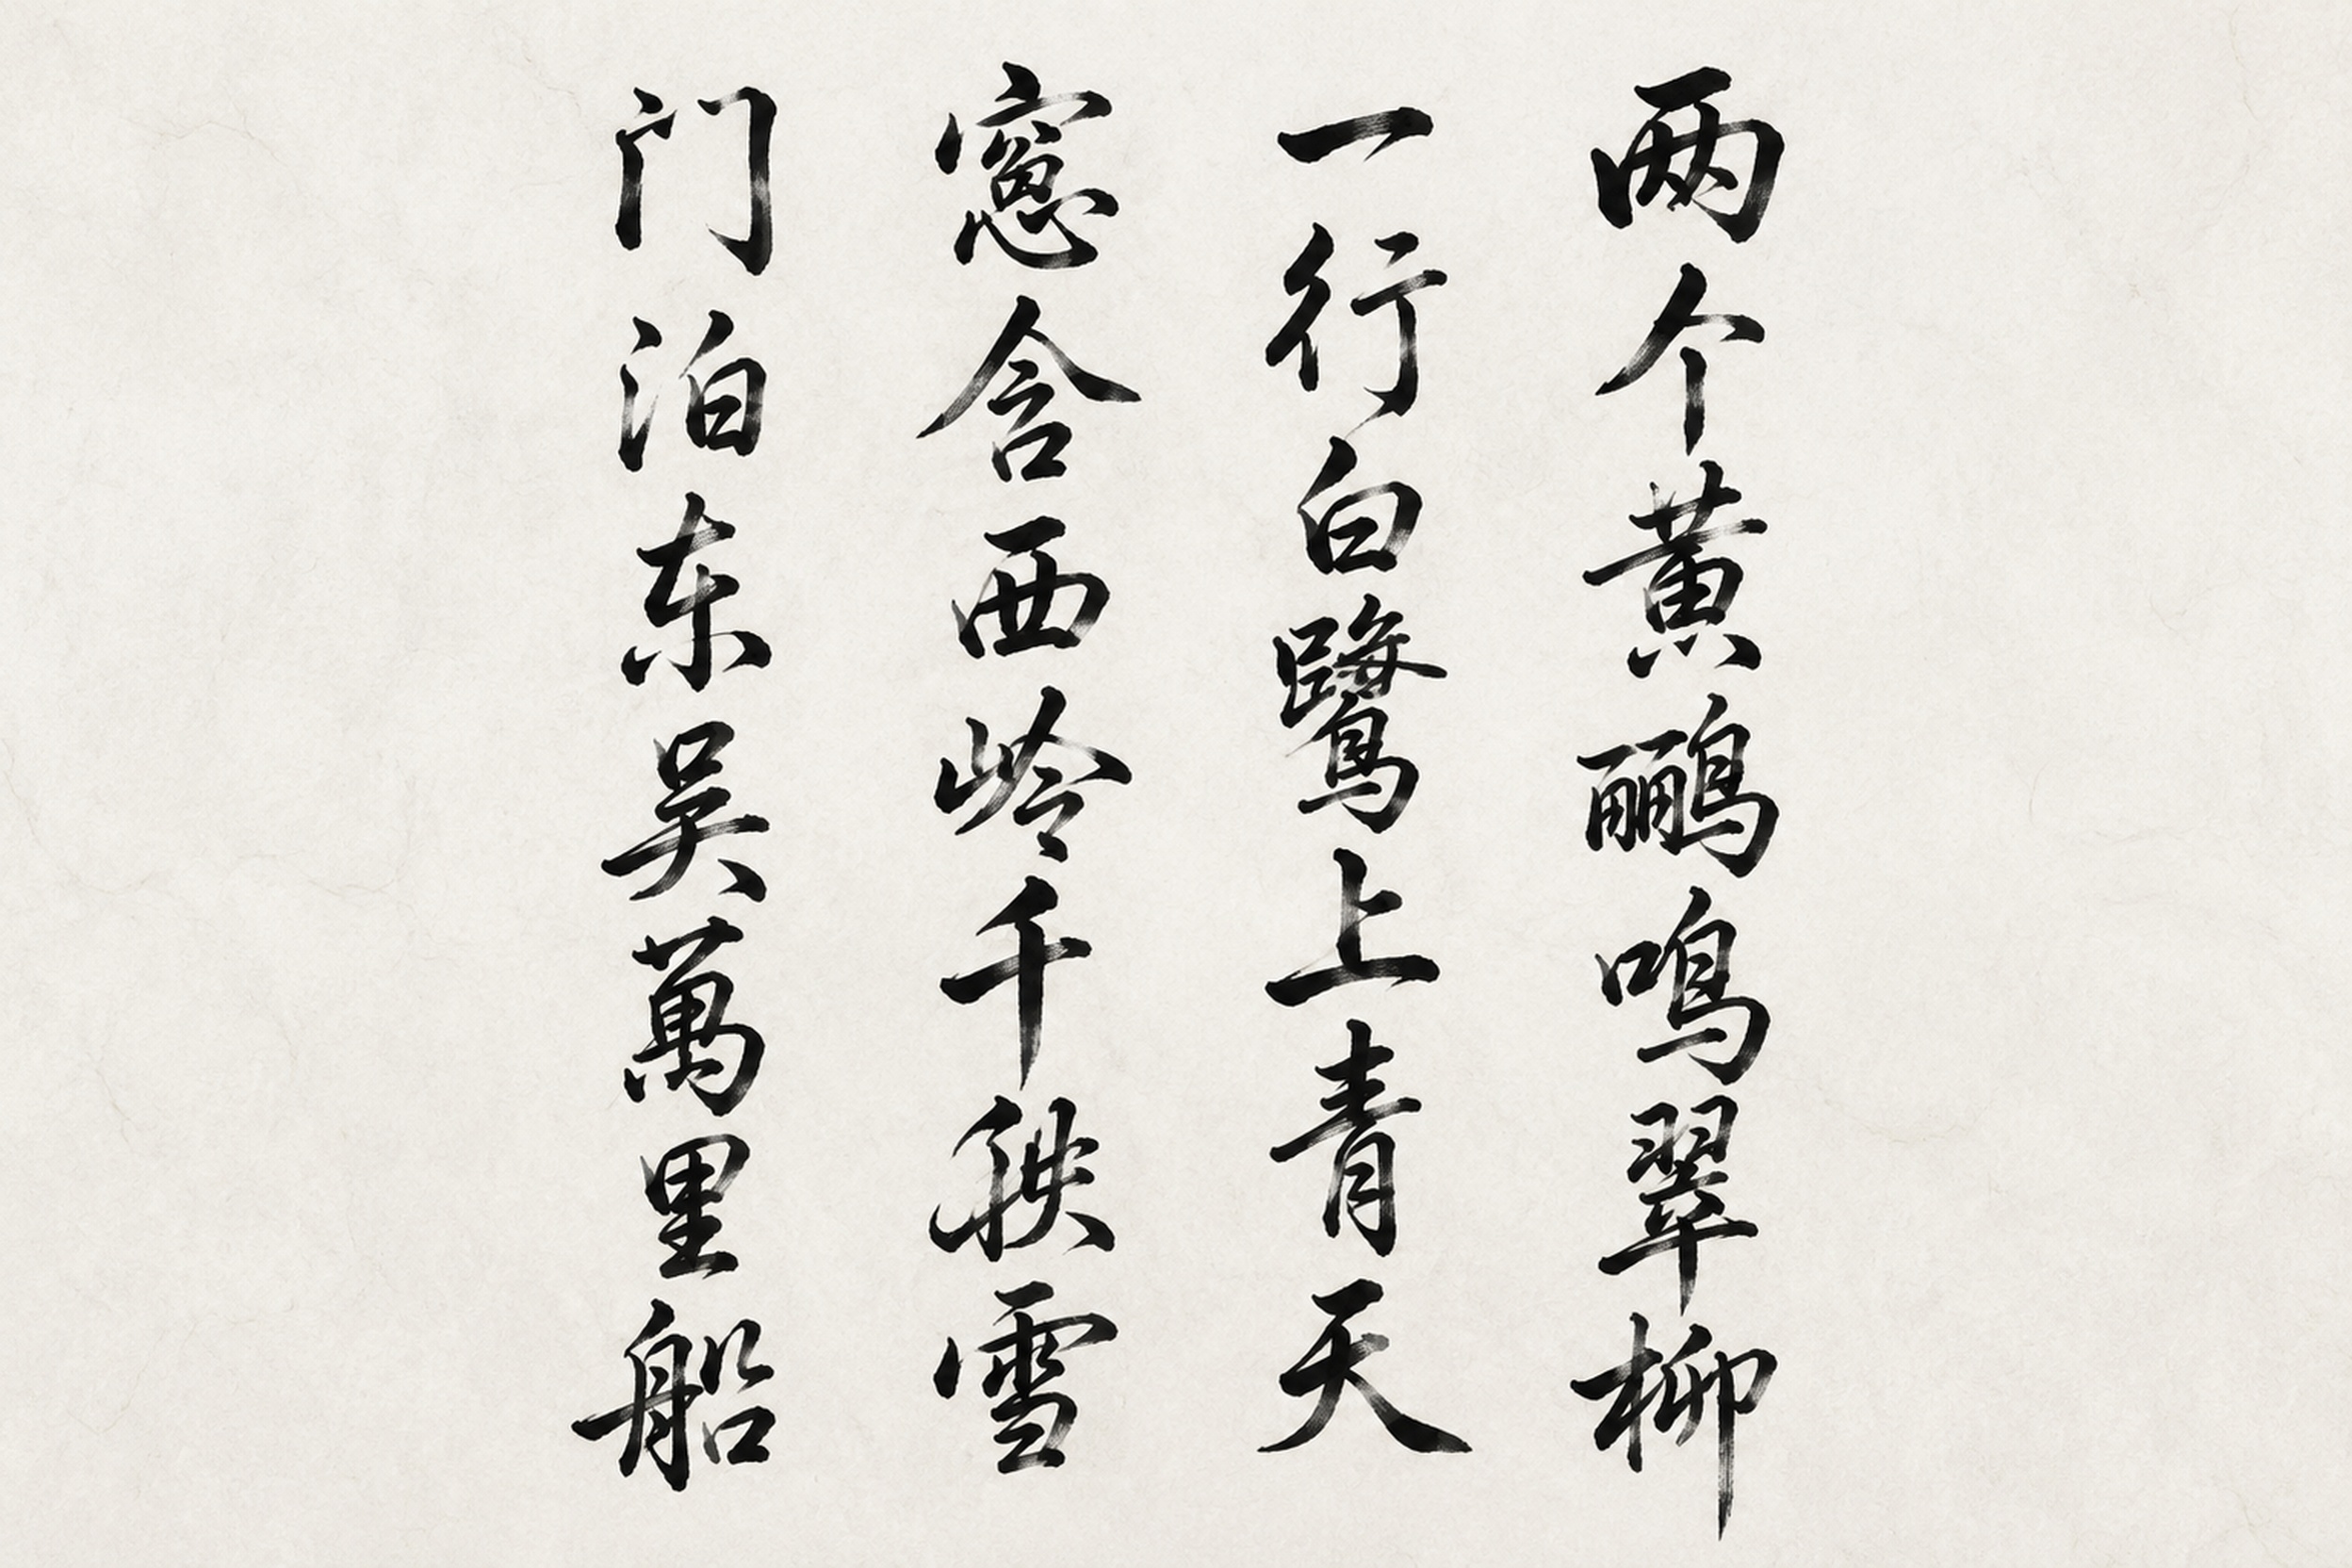 两个黄鹂鸣翠柳
一行白鹭上青天
窓含西岭千秩雪
门泊东吴萬里船